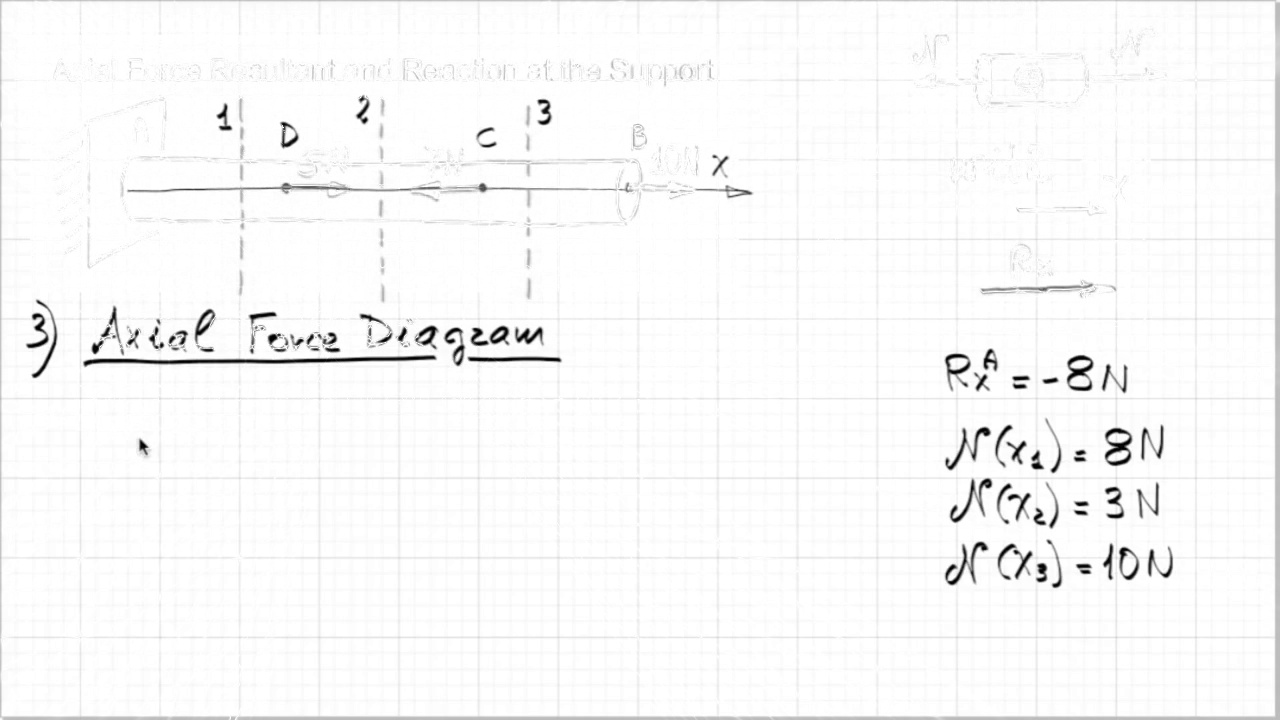 Axial Force Resultant and Reaction at the Support
1 2 3
D C B
5N 7N 10N x
A
N N
x
Rx
3) Axial Force Diagram
RxA = -8N
N(x1) = 8N
N(x2) = 3N
N(x3) = 10N